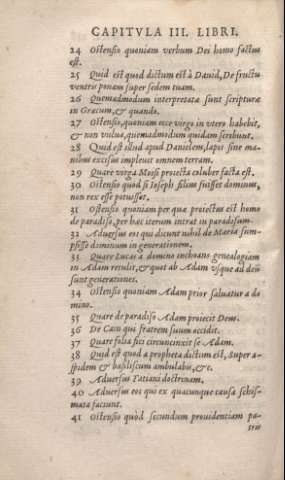 CAPITVLA III. LIBRI.
24 Ostensio quoniam verbum Dei homo factus
est.
25 Quid est quod dictum est à Dauid, De fructu
ventris ponam super sedem tuam.
26 Quemadmodum interpretatæ sunt scripturæ
in Græcum, & quando.
27 Ostensio, quoniam ecce virgo in vtero habebit,
& non vulua, quemadmodum quidam scribunt.
28 Quid est illud apud Danielem, lapis sine ma-
nibus excisus impleuit omnem terram.
29 Quare virga Mosi proiecta coluber facta est.
30 Ostensio quod si Ioseph filius fuisset dominus,
non rex esse potuisset.
31 Ostensio quoniam per quæ proiectus est homo
de paradiso, per hæc iterum intrat in paradisum.
32 Aduersus eos qui dicunt nihil de Maria sum-
psisse dominum in generationem.
33 Quare Lucas à domino inchoans genealogiam
in Adam retulit, & quot ab Adam vsque ad deũ
sunt generationes.
34 Ostensio quoniam Adam prior saluatur a do
mino.
35 Quare de paradiso Adam proiecit Deus.
36 De Cain qui fratrem suum occidit.
37 Quare folia fici circumcinxit se Adam.
38 Quid est quod a propheta dictum est, Super a-
spidem & basiliscum ambulabis, &c.
39 Aduersus Tatiani doctrinam.
40 Aduersus eos qui ex quacunque causa schis-
mata faciunt.
41 Ostensio quòd secundum prouidentiam pa-
tris